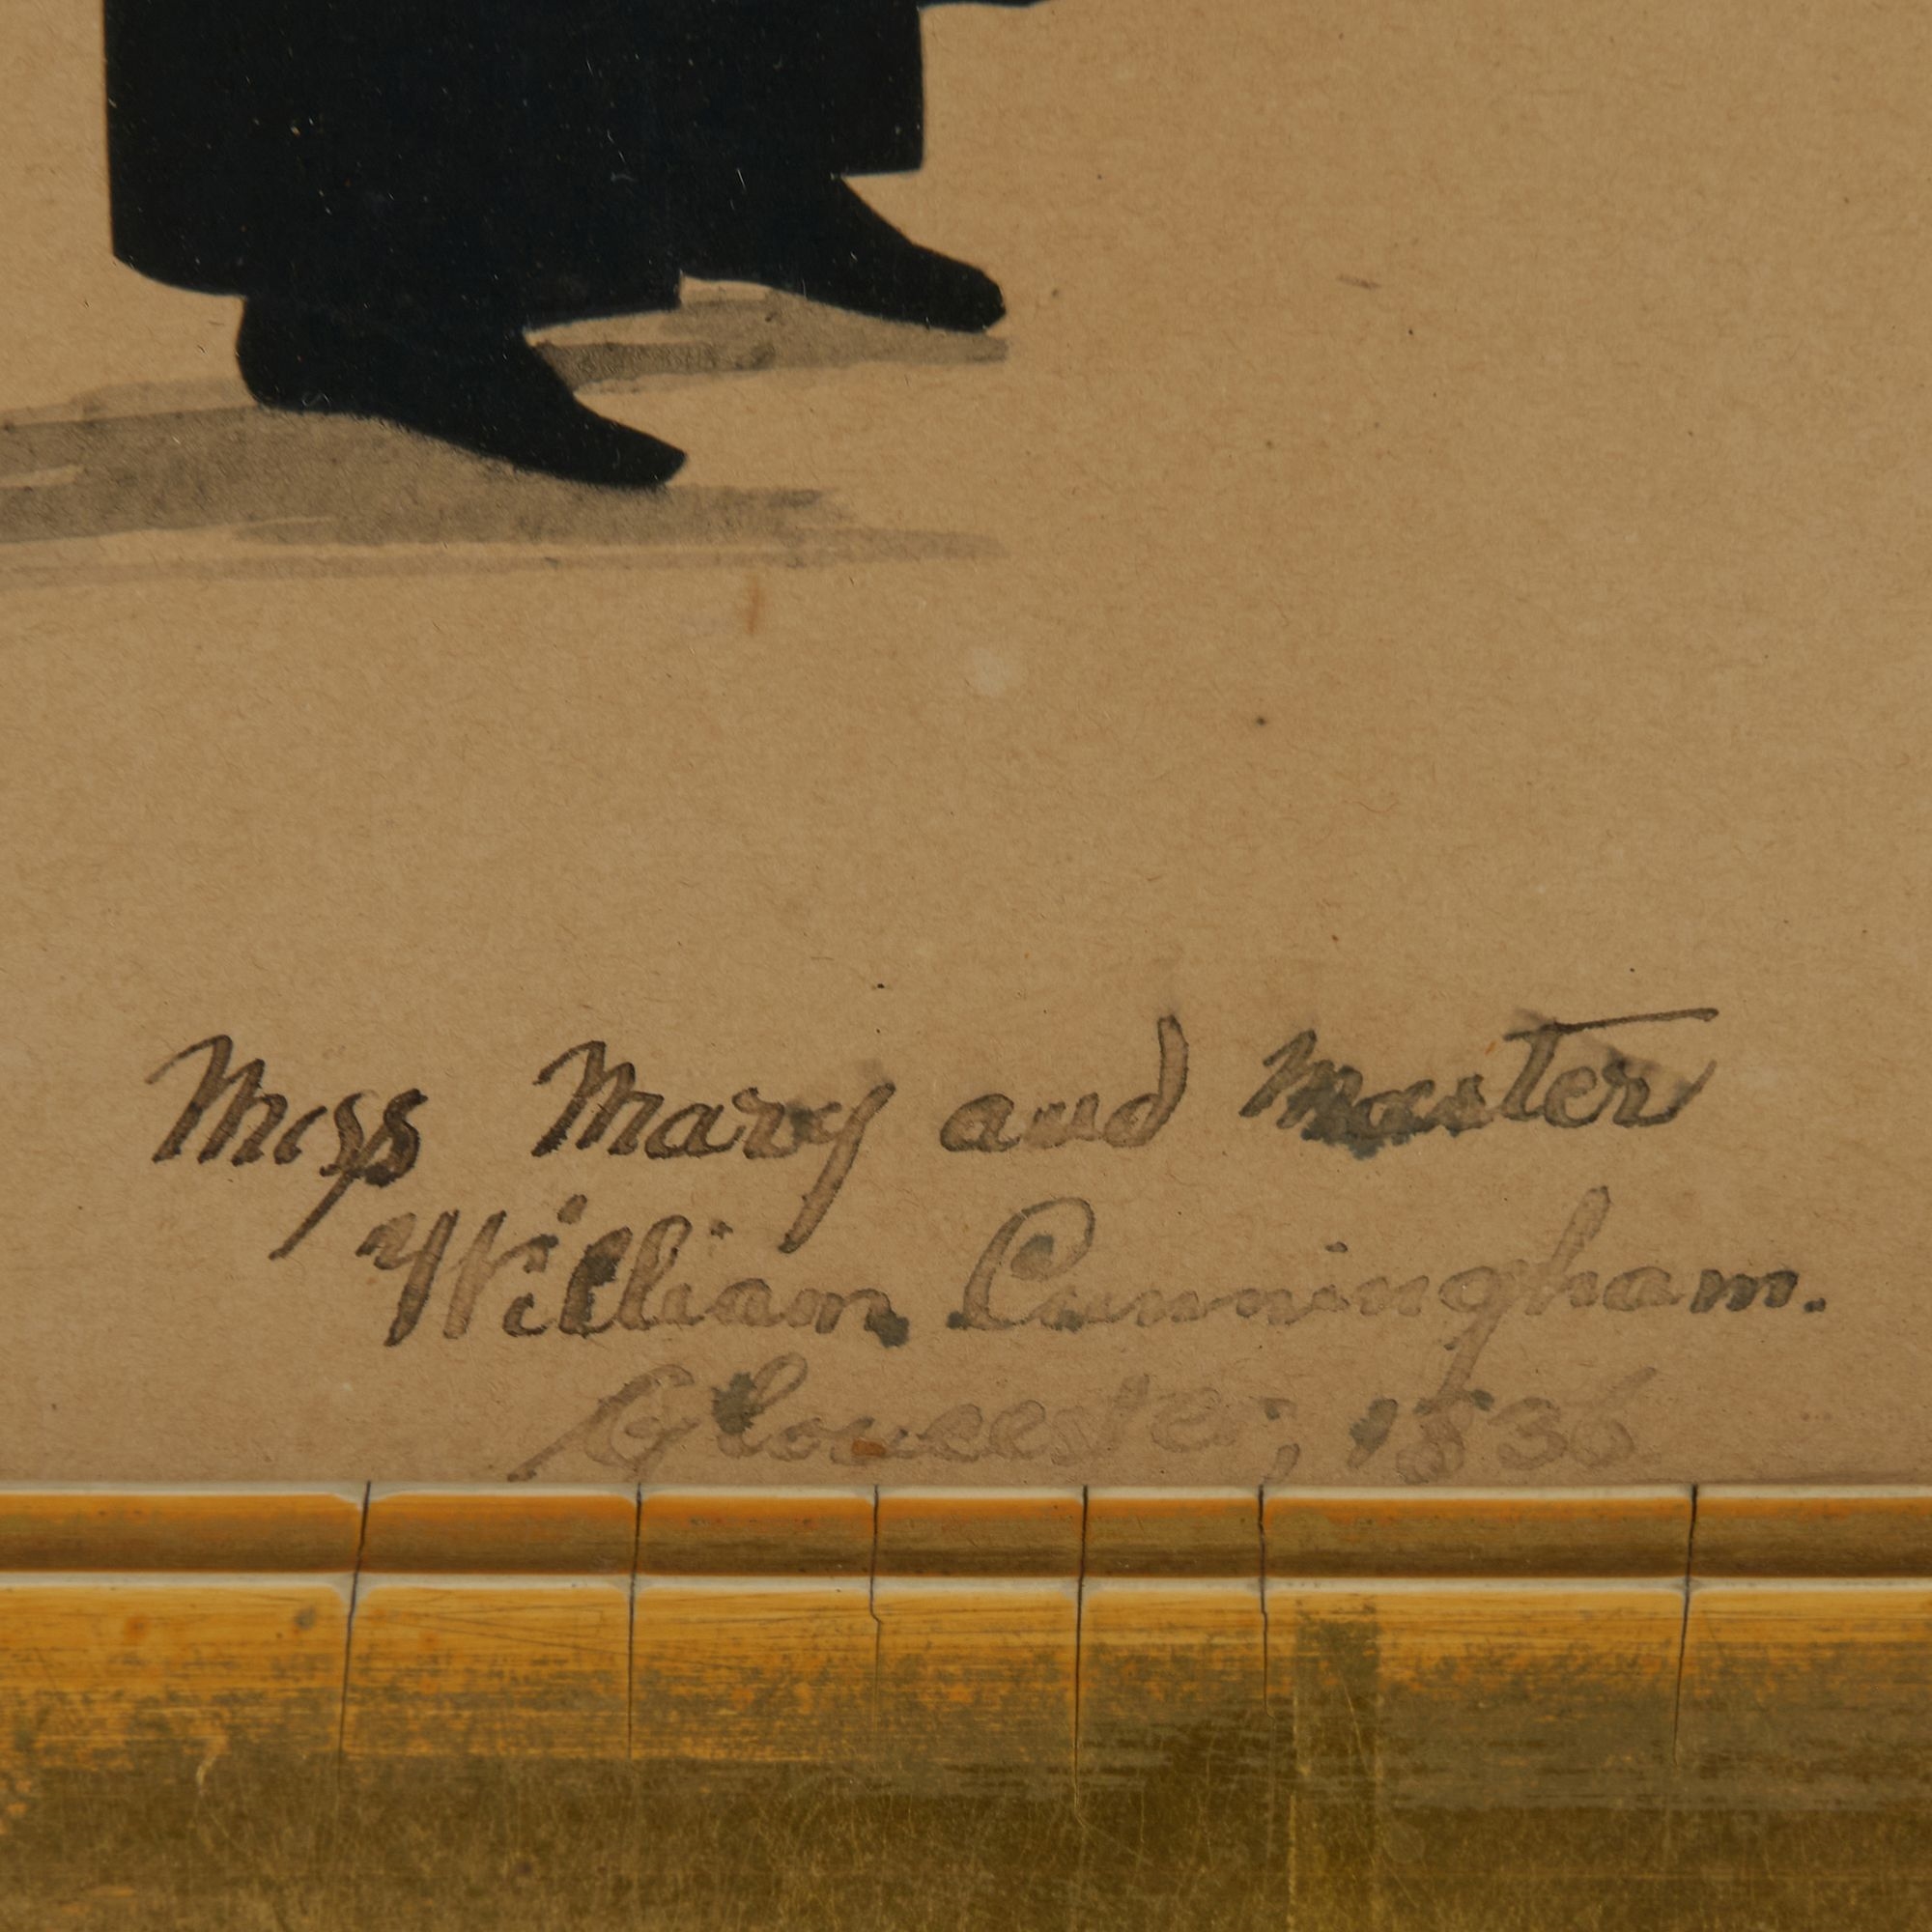 Miss Mary and Master
William Cunningham.
Gloucester, 1836